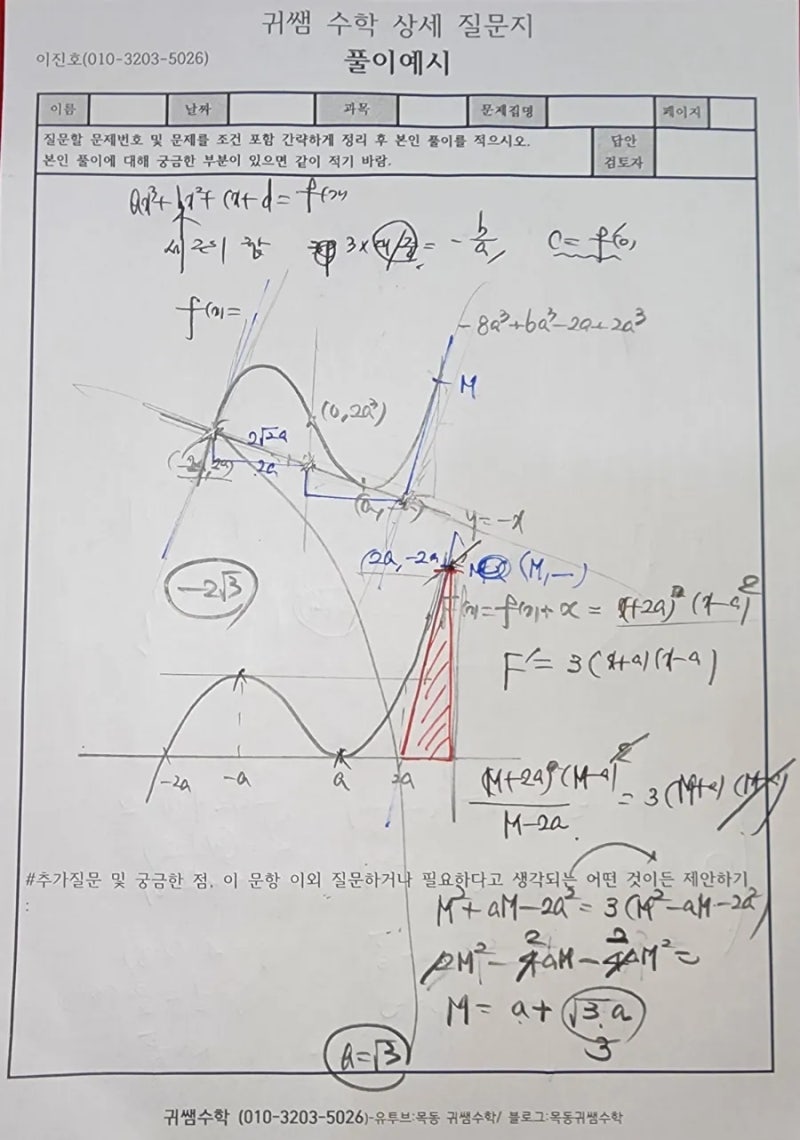 귀쌤 수학 상세 질문지
이진호(010-3203-5026)
풀이예시
이름 날짜 과목 문제집명 페이지
질문할 문제번호 및 문제를 조건 포함 간략하게 정리 후 본인 풀이를 적으시오.
본인 풀이에 대해 궁금한 부분이 있으면 같이 적기 바람.
답안
검토자
ax³+bx²+cx+d=f(x)
세 근의 합 3× = -b/a, c=f'(0)
f(x)=
-8a³+6a³-2a+2a³
M
(0, 2a³)
2√2a
(-2a, 2a)
2a
y=-x
(2a, -2a)
(M, )
-2√3
F(x)=f(x)+x = (x+2a)(x-a)²
F'= 3(x+a)(x-a)
-2a -a a 2a
(M+2a)(M-a)²/M-2a = 3(M+a)(M-a)
#추가질문 및 궁금한 점, 이 문항 이외 질문하거나 필요하다고 생각되는 어떤 것이든 제안하기
:
M²+aM-2a²= 3(M²-aM-2a²)
M= a+√3a
3
a=√3
귀쌤수학 (010-3203-5026)-유투브:목동 귀쌤수학/ 블로그:목동귀쌤수학